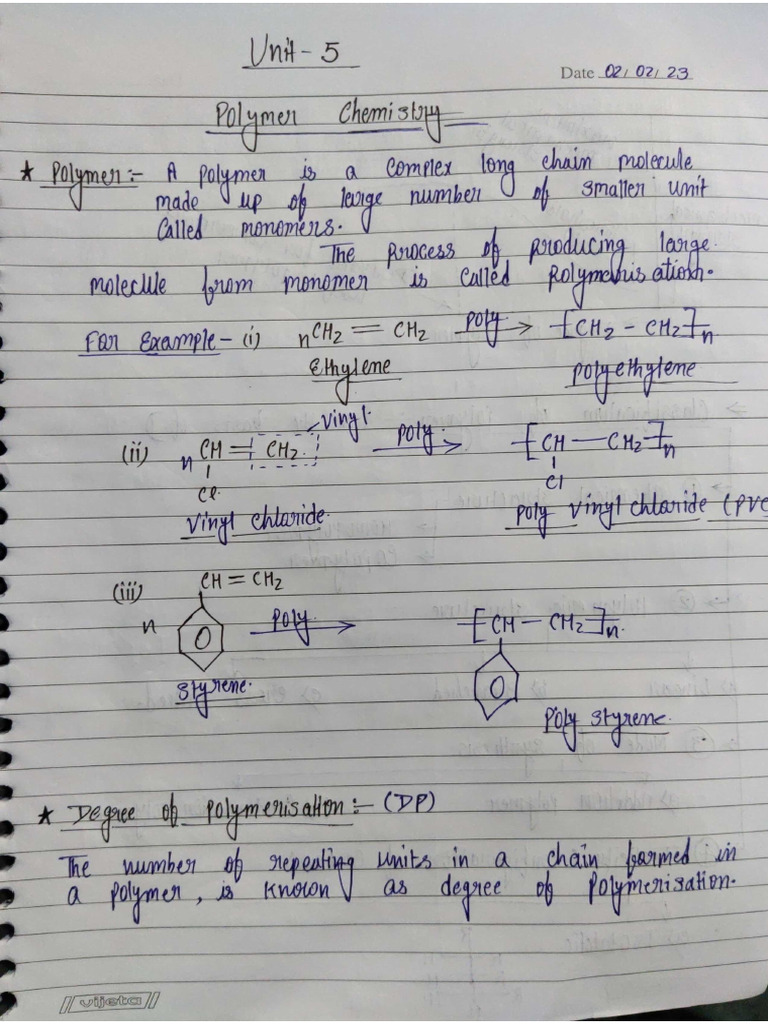 Unit - 5
Date 02/02/23
Polymer Chemistry
* Polymer:- A polymer is a complex long chain molecule
made up of large number of smaller unit
called monomers.
The process of producing large
molecule from monomer is called Polymerisation.
For Example - (i) nCH2 = CH2 poly. → -[CH2 - CH2]-n
Ethylene
polyethylene
vinyl.
(ii) n CH = CH2 poly. → -[CH - CH2]-n
Cl Cl
vinyl chloride. poly vinyl chloride (PVC
(iii) CH = CH2
n poly. → -[CH - CH2]-n.
styrene.
Poly styrene.
* Degree of polymerisation:- (DP)
The number of repeating units in a chain formed in
a polymer, is known as degree of polymerisation.
vijeta